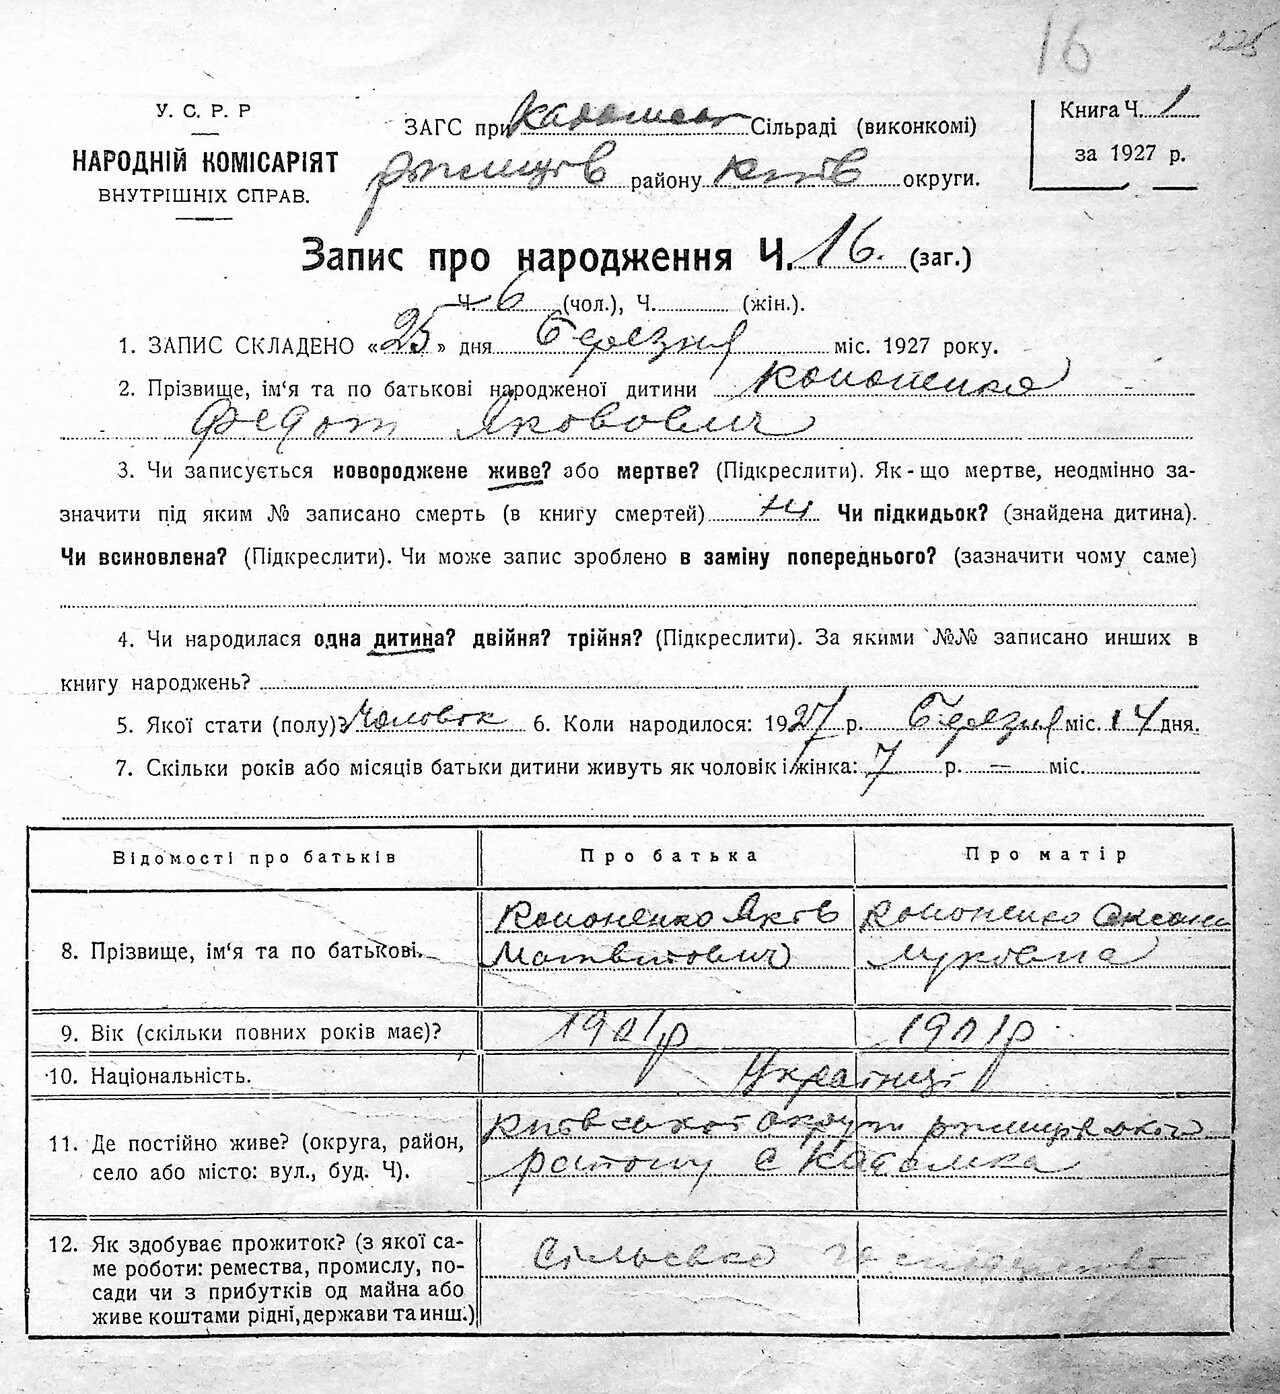 16 225
У. С. Р. Р
НАРОДНІЙ КОМІСАРІЯТ
ВНУТРІШНІХ СПРАВ.
ЗАГС при Сільраді (виконкомі)
району Київ округи.
Книга Ч. 1
за 1927 р.
Запис про народження Ч. 16. (заг.)
Ч. 6 (чол.), Ч. (жін.).
1. ЗАПИС СКЛАДЕНО «25» дня Березня міс. 1927 року.
2. Прізвище, ім‘я та по батькові народженої дитини Кононенко
Федот Якович
3. Чи записується новороджене живе? або мертве? (Підкреслити). Як-що мертве, неодмінно за-
значити під яким № записано смерть (в книгу смертей) Чи підкидьок? (знайдена дитина).
Чи всиновлена? (Підкреслити). Чи може запис зроблено в заміну попереднього? (зазначити чому саме)
4. Чи народилася одна дитина? двійня? трійня? (Підкреслити). За якими №№ записано инших в
книгу народжень?
5. Якої стати (полу)? Чоловік 6. Коли народилося: 1927 р. Березня міс. 14 дня.
7. Скільки років або місяців батьки дитини живуть як чоловік і жінка: 7 р. — міс.
Відомості про батьків Про батька Про матір
8. Прізвище, ім‘я та по батькові. Кононенко Яків Кононенко Оксана
Матвійович Луківна
9. Вік (скільки повних років має)? 1901р 1901р.
10. Національність. Українці
11. Де постійно живе? (округа, район, Київської округи
село або місто: вул., буд. Ч). району с
12. Як здобуває прожиток? (з якої са- Сільське господарство
ме роботи: ремества, промислу, по-
сади чи з прибутків од майна або
живе коштами рідні, держави та инш.)